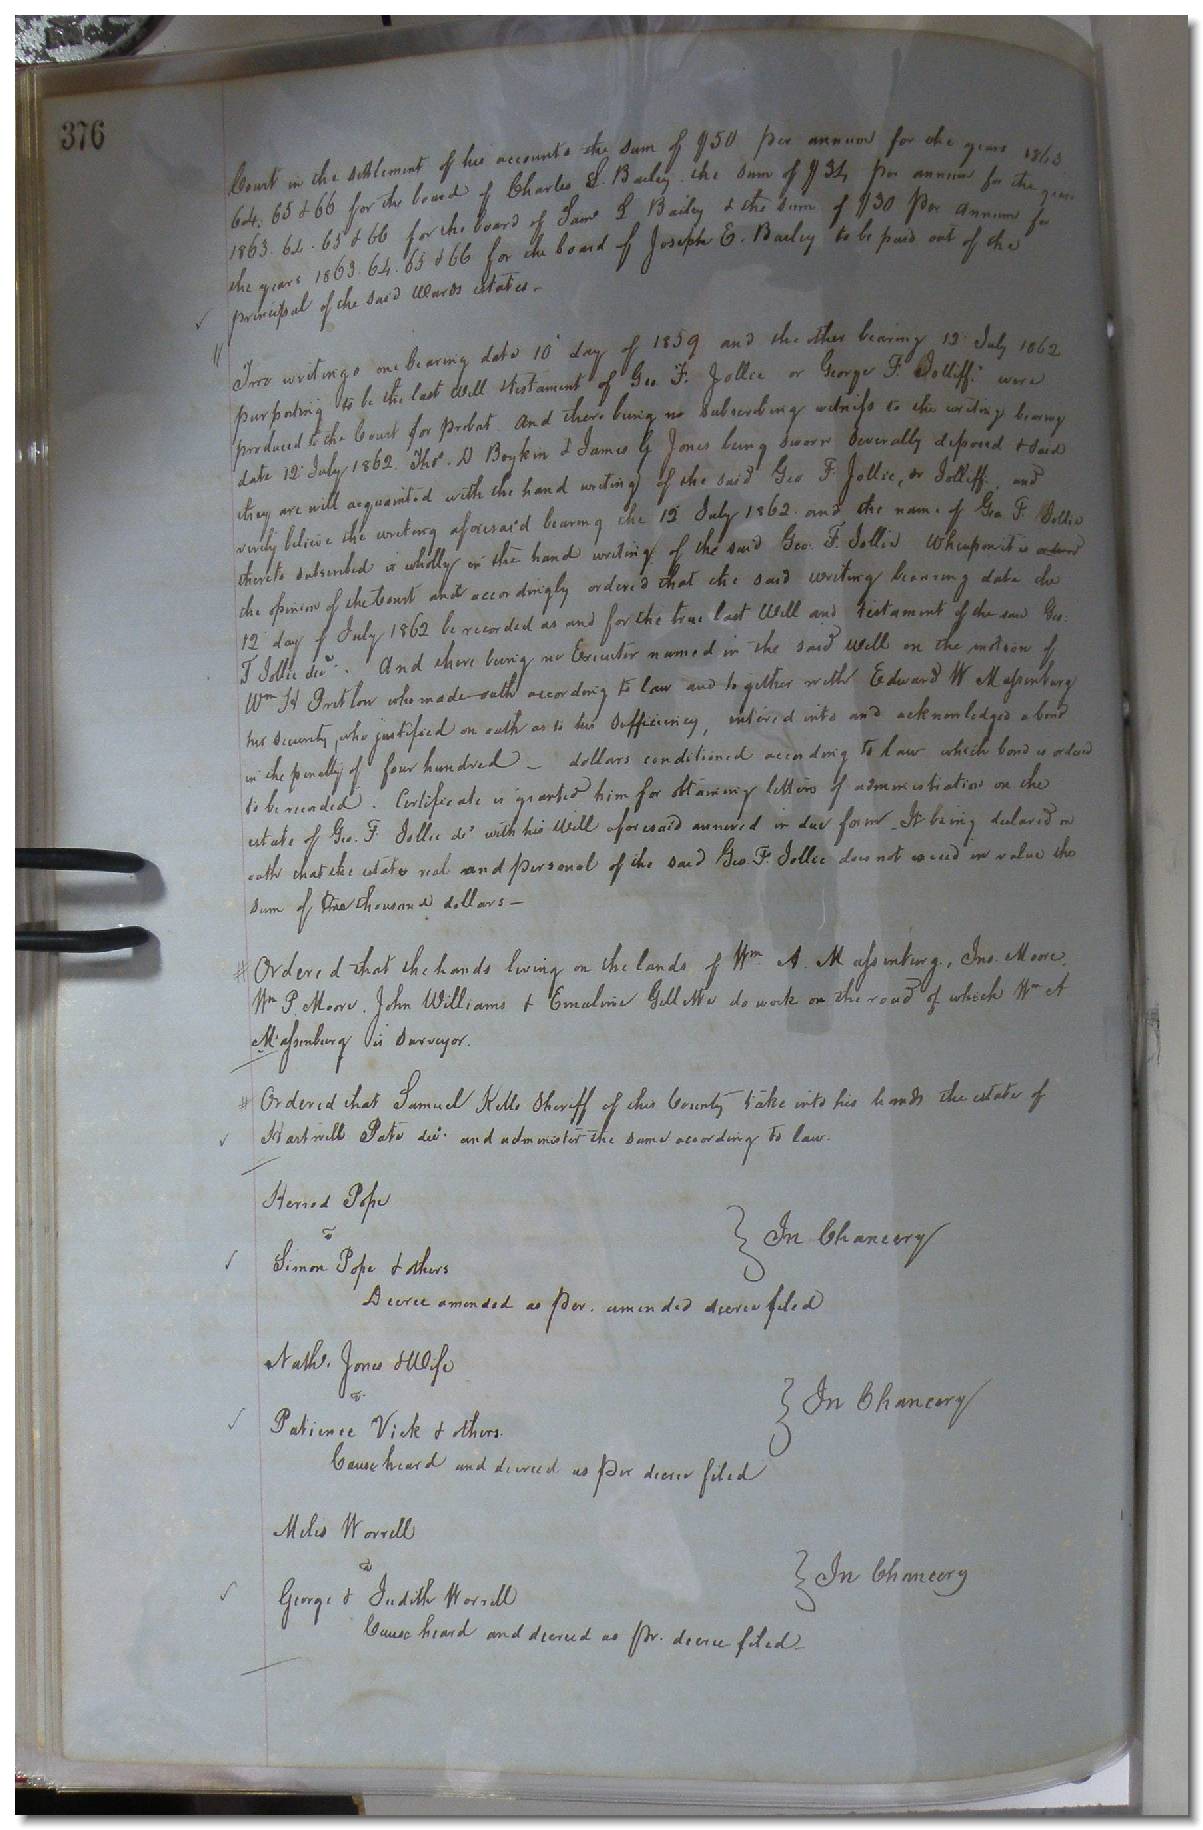 376
Court in the settlement of his accounts the sum of $50 per annum for the years 1863
64. 65 & 66 for the board of Charles L. Bailey the sum of $34 per annum for the years
1863. 64. 65 & 66 for the board of Saml L Bailey & the sum of $30 per annum for
the years 1863. 64. 65 & 66 for the board of Joseph E. Bailey to be paid out of the
principal of the said wards estates.
Two writings one bearing date 10th day of 1859 and the other bearing 12 July 1862
purporting to be the last will & testament of Geo F. Jollie or George F. Jolliff were
produced to the Court for probat. And there being no subscribing witness to the writing bearing
date 12 July 1862. Thos. D Boykin & James G Jones being sworn severally deposed & said
they are well acquainted with the hand writing of the said Geo F. Jollie, or Jolliff, and
verily believe the writing aforesaid bearing the 12 July 1862. and the name of Geo F. Jollie
thereto subscribed is wholly in the hand writing of the said Geo. F. Jollie Whereupon it is
the opinion of the Court and accordingly ordered that the said writing bearing date the
12 day of July 1862 be recorded as and for the true last Will and testament of the said Geo.
F Jollie decd. And there being no Executor named in the said Will on the motion of
Wm H Pretlow who made oath according to law and together with Edward W Massenburg
his security, who justified on oath as to his sufficiency, entered into and acknowledged a bond
in the penalty of four hundred — dollars conditioned according to law which bond is ordered
to be recorded. Certificate is granted him for obtaining letters of administration on the
estate of Geo. F. Jollie dec with his Will aforesaid annexed in due form. It being declared on
oath that the estate real and personal of the said Geo. F. Jollie does not exceed in value the
sum of thousand dollars—
Ordered that the hands living on the lands of Wm A. Massenburg, Jno. Moore,
Wm P. Moore, John Williams & Emaline Gillette do work on the road of which Wm A
Massenburg is surveyor.
Ordered that Samuel Kello Sheriff of this County take into his hands the estate of
Hartwell Pate dec. and administer the same according to law.
Herrod Pope
vs
Simon Pope & others
} In Chancery
Decree amended as per. amended decree filed
Nath. Jones & Wife
vs
Patience Vick & others.
} In Chancery
Cause heard and decreed as per decree filed
Miles Worrell
vs
George & Judith Worrell
} In Chancery
Cause heard and decreed as pr. decree filed.